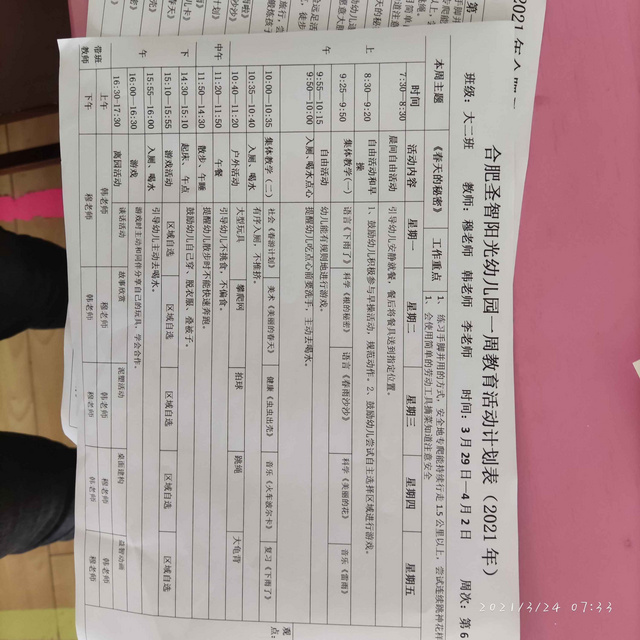 合肥圣智阳光幼儿园一周教育活动计划表（2021 年）
班级：大二班 教师：穆老师 韩老师 李老师 时间：3 月 29 日—4 月 2 日 周次：第 6
本周主题 《春天的秘密》 工作重点 1、练习手脚并用的方式，安全地专爬能持续行走 1.5 公里以上，尝试连续跳绳花样
1、会使用简单的劳动工具摘菜知道注意安全
时间 活动内容 星期一 星期二 星期三 星期四 星期五
7:30—8:30 晨间自由活动 引导幼儿安静就餐，餐后将餐具送到指定位置。
8:30—9:20 自由活动和早操 1、鼓励幼儿积极参与早操活动，规范动作。2、鼓励幼儿尝试自主选择区域进行游戏。
上午
9:25—9:50 集体教学(一) 语言《下雨了》 科学《根的秘密》 语言《春雨沙沙》 科学《美丽的花》 音乐《雷雨》
9:55—10:15 自由活动 幼儿能有规则地进行游戏。
9:50—10:00 入厕、喝水点心 提醒幼儿吃点心前要洗手，主动去喝水。
10:00—10:35 集体教学（二） 社会《春游计划》 美术《美丽的春天》 健康《虫虫出壳》 音乐《火车波尔卡》 复习《下雨了》
10:35—10:40 入厕、喝水 有序入厕，不推挤。
10:40—11:20 户外活动 大型玩具 攀爬网 拍球 跳绳 大龟背
中午
11:20—11:50 午餐 引导幼儿不挑食、不偏食。
11:50—14:30 散步、午睡 提醒幼儿散步时不能快速奔跑。
下午
14:30—15:10 起床、午点 鼓励幼儿自己穿、脱衣服、叠被子。
15:10—15:55 游戏活动 区域自选 区域自选 区域自选 区域自选 区域自选
15:55—16:00 入厕、喝水 引导幼儿主动去喝水。
16:00—16:30 游戏 游戏时主动和同伴分享自己的玩具，学会合作。
16:30-17:30 离园活动 谈话活动 故事欣赏 泥塑活动 桌面建构 益智动画
带班教师 上午 韩老师 穆老师 韩老师 穆老师 韩老师
下午 穆老师 韩老师 穆老师 韩老师 穆老师
观
点：
2021/3/24 07:33